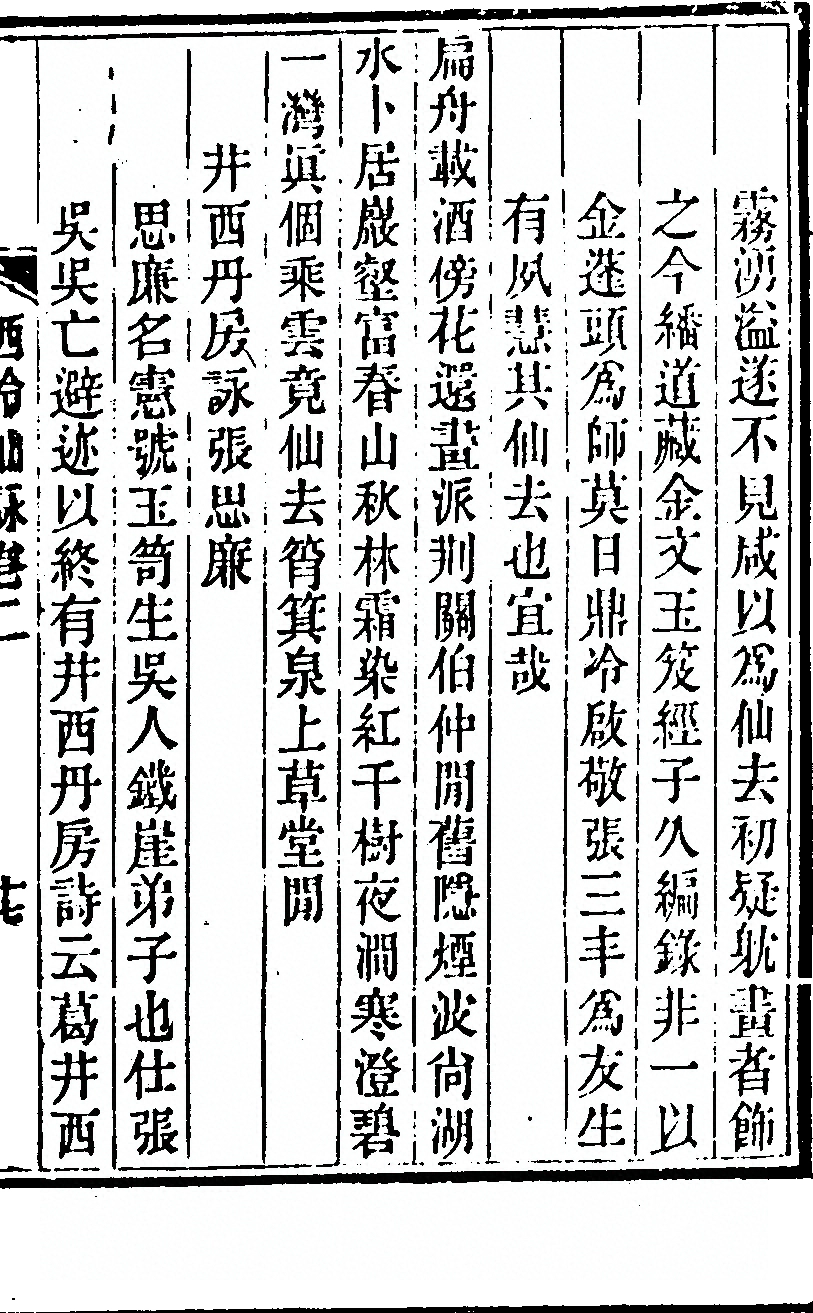 霧湧溢遂不見咸以爲仙去初疑躭畫者飾
之今繙道藏金文玉笈經子久編錄非一以
金蓬頭爲師莫日鼎冷啟敬張三丰爲友生
有夙慧其仙去也宜哉
扁舟載酒傍花還畫派荆關伯仲閒舊隱煙波尙湖
水卜居巖壑富春山秋林霜染紅千樹夜澗寒澄碧
一灣眞個乘雲竟仙去筲箕泉上草堂閒
井西丹房詠張思廉
思廉名憲號玉笥生吳人鐵崖弟子也仕張
吳吳亡避迹以終有井西丹房詩云葛井西
西泠仙詠卷二